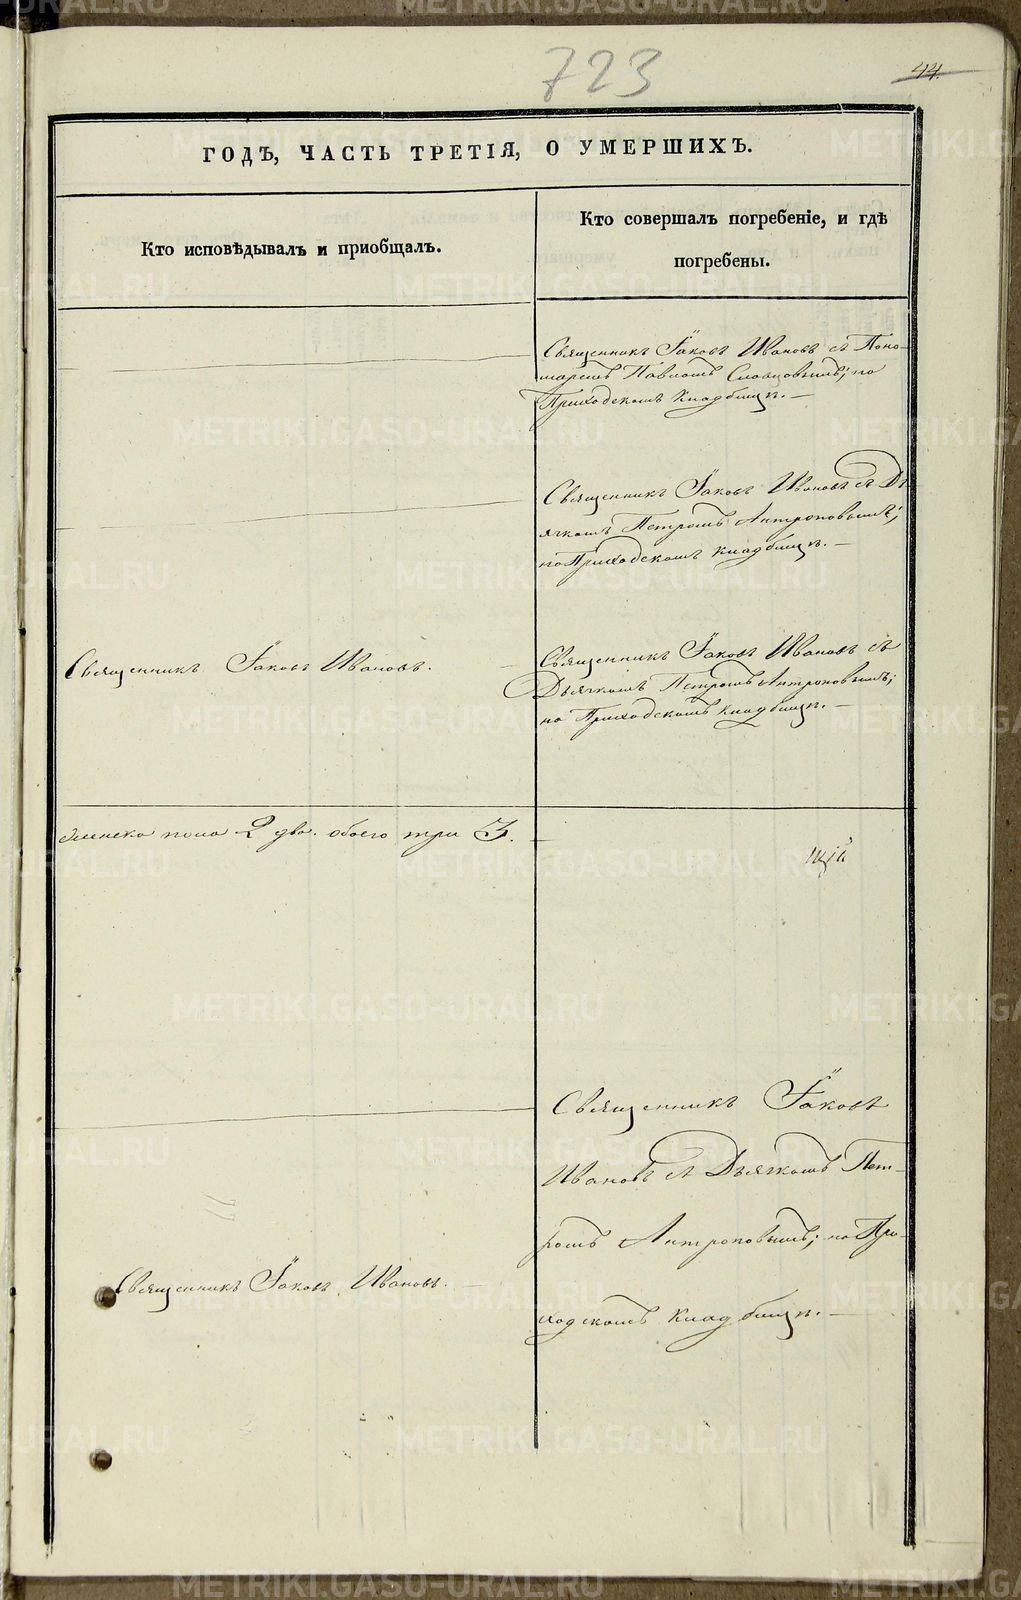 723
44.
ГОДЪ, ЧАСТЬ ТРЕТІЯ, О УМЕРШИХЪ.
Кто исповѣдывалъ и пріобщалъ.
Кто совершалъ погребеніе, и гдѣ
погребены.
Священникъ Іаковъ Ивановъ съ Поно-
маремъ Павломъ Словцовымъ; на
Приходскомъ кладбищѣ. —
Священникъ Іаковъ Ивановъ съ Дь
ячкомъ Петромъ Антроповымъ;
на Приходскомъ кладбищѣ. —
Священникъ Іаковъ Ивановъ. —
Священникъ Іаковъ Ивановъ съ
Дьячкомъ Петромъ Антроповымъ;
на Приходскомъ кладбищѣ. —
женска пола 2 два. обоего три 3. —
щій
Священникъ Іаковъ
Ивановъ съ Дьячкомъ Пет-
ромъ Антроповымъ; на При-
ходскомъ кладбищѣ. —
Священникъ Іаковъ Ивановъ. —
METRIKI.GASO-URAL.RU